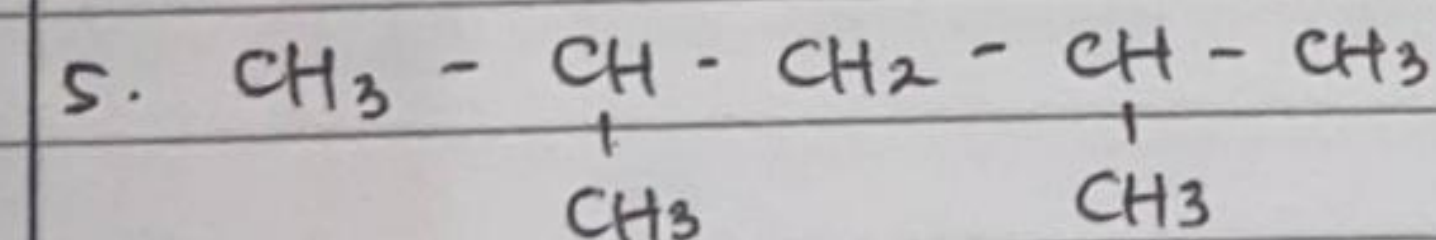 5. CH3 - CH - CH2 - CH - CH3
CH3 CH3